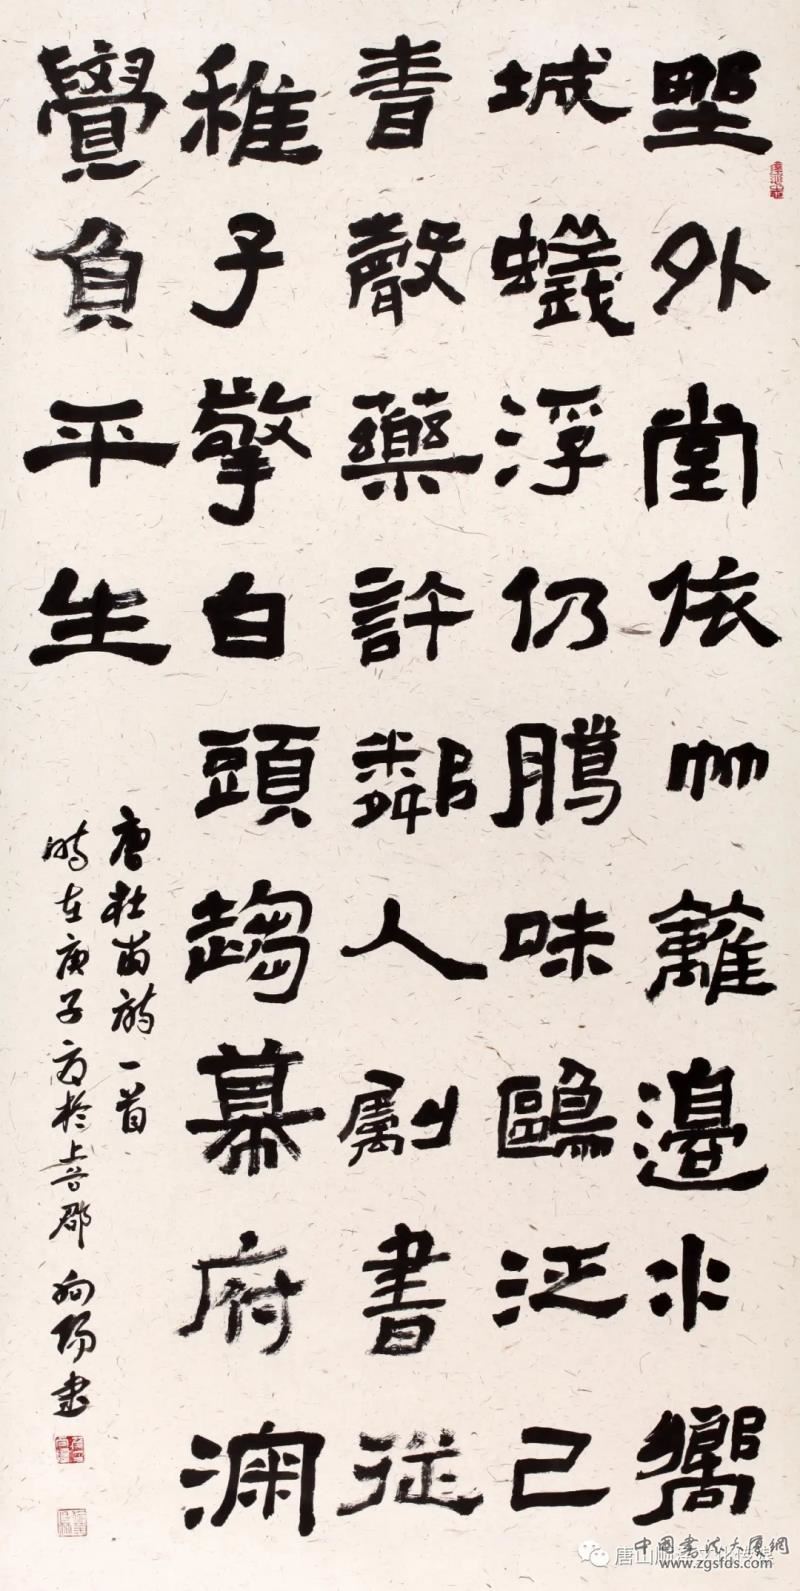 野外堂依竹籬邊水嚮
城蟻浮仍臘味鷗泛已
春聲藥許鄰人劚書從
稚子擎白頭趨幕府深
覺負平生
唐杜甫詩一首
時在庚子夏於上谷郡向陽書
中國書法大廈網
www.zgsfds.com
唐山